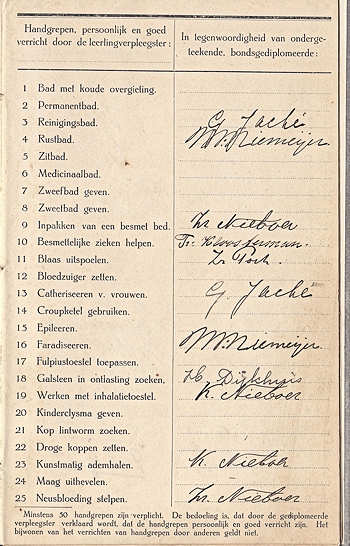 Handgrepen, persoonlijk en goed verricht door de leerlingverpleegster :
In tegenwoordigheid van ondergeteekende, bondsgediplomeerde :
1 Bad met koude overgieting.
2 Permanentbad.
3 Reinigingsbad. G. Jaché
4 Rustbad. Niemeijer
5 Zitbad.
6 Medicinaalbad.
7 Zweefbad geven.
8 Zweetbad geven.
9 Inpakken van een besmet bed. Zr Nieboer
10 Besmettelijke zieken helpen.
11 Blaas uitspoelen. Zr
12 Bloedzuiger zetten.
13 Catheriseeren v. vrouwen. G. Jaché
14 Croupketel gebruiken.
15 Epileeren.
16 Faradiseeren. Niemeijer
17 Fulpiustoestel toepassen.
18 Galsteen in ontlasting zoeken. Dijkhuis
19 Werken met inhalatietoestel. K. Nieboer
20 Kinderclysma geven.
21 Kop lintworm zoeken.
22 Droge koppen zetten.
23 Kunstmatig ademhalen. K. Nieboer
24 Maag uithevelen.
25 Neusbloeding stelpen. Zr. Nieboer
*Minstens 50 handgrepen zijn verplicht. De bedoeling is, dat door de gediplomeerde
verpleegster verklaard wordt, dat de handgrepen persoonlijk en goed verricht zijn. Het
bijwonen van het verrichten van handgrepen door anderen geldt niet.